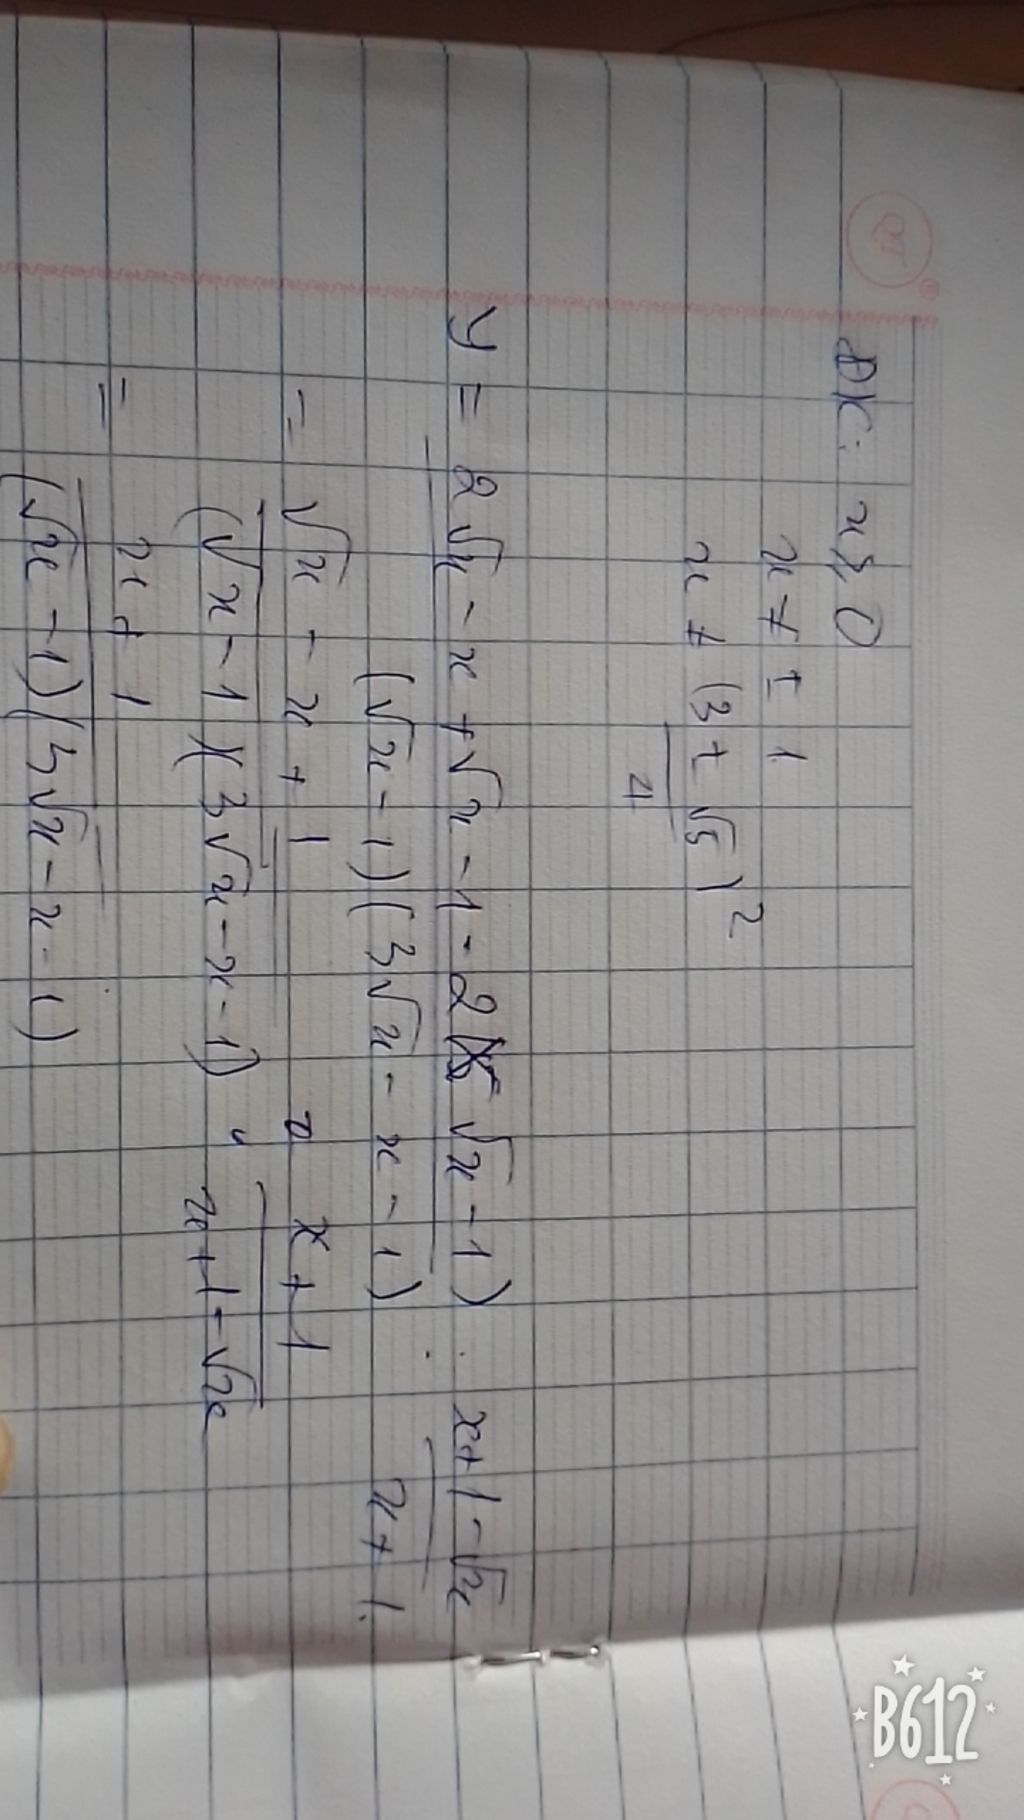 ĐK: x ≥ 0
x ≠ ± 1
x ≠ (3 ± √5)²
4
y = 2√x - x + √x - 1 - 2(√x - 1) : x + 1 - √x
(√x - 1)(3√x - x - 1) x + 1.
= √x - x + 1 . x + 1
(√x - 1)(3√x - x - 1) x + 1 - √x
= x + 1
(√x - 1)(3√x - x - 1)
B612